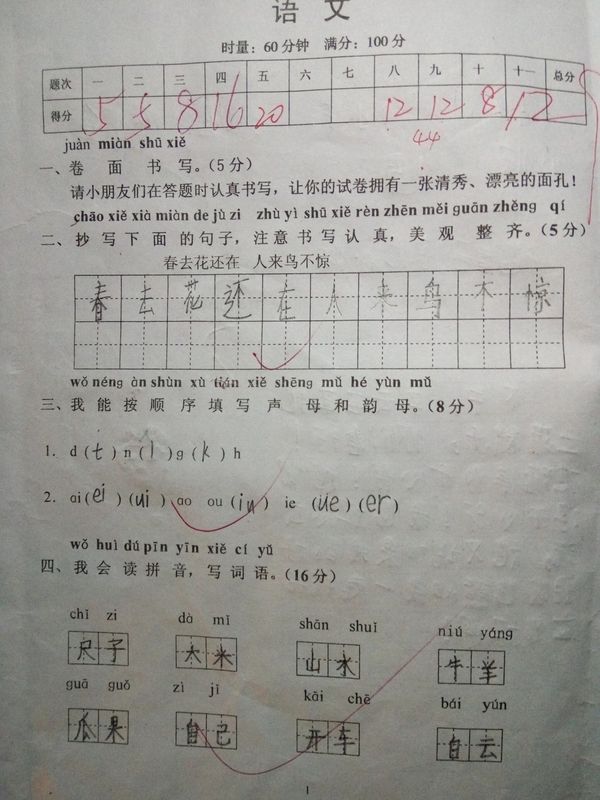 语文
时量：60分钟 满分：100分
题次 一 二 三 四 五 六 七 八 九 十 十一 总分
得分 5 5 8 16 20 12 12 8 12
44
juàn miàn shū xiě
一、卷 面 书 写。(5分)
请小朋友们在答题时认真书写，让你的试卷拥有一张清秀、漂亮的面孔！
chāo xiě xià miàn de jù zi zhù yì shū xiě rèn zhēn měi guān zhěng qí
二、抄 写 下 面 的 句 子，注 意 书 写 认 真，美 观 整 齐。(5分)
春去花还在 人来鸟不惊
春 去 花 还 在 人 来 鸟 不 惊
wǒ néng àn shùn xù tián xiě shēng mǔ hé yùn mǔ
三、我 能 按 顺 序 填 写 声 母 和 韵 母。(8分)
1. d (t) n (l) g (k) h
2. ai (ei) (ui) ao ou (iu) ie (üe) (er)
wǒ huì dú pīn yīn xiě cí yǔ
四、我 会 读 拼 音，写 词 语。(16分)
chǐ zi dà mǐ shān shuǐ niú yáng
尺子 大米 山水 牛羊
guā guǒ zì jǐ kāi chē bái yún
瓜果 自己 开车 白云
1